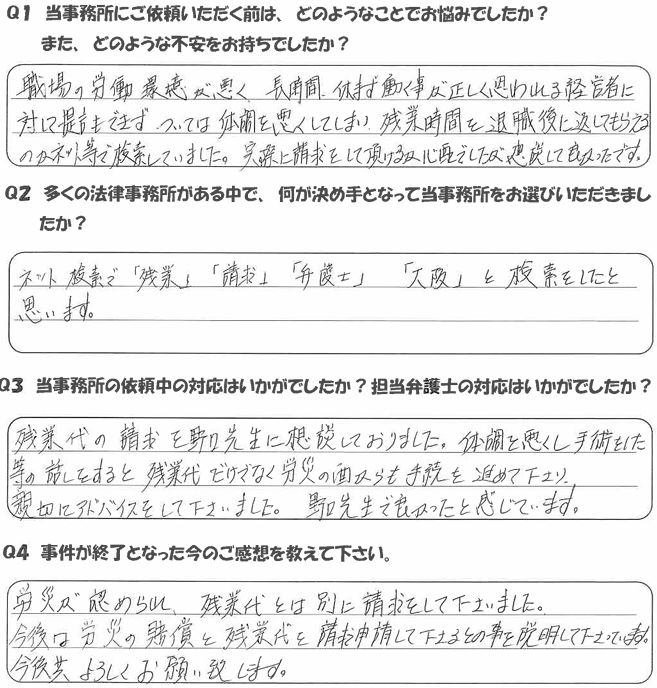 Q1 当事務所にご依頼いただく前は、どのようなことでお悩みでしたか？
また、どのような不安をお持ちでしたか？
職場の労働環境が悪く、長時間、休まず働く事が正しく思われる経営者に
対して提言もできず、ついては体調を悪くしてしまい、残業時間を退職後に返してもらえる
のかネット等で検索していました。実際に請求をして頂けるか心配でしたが相談して良かったです。
Q2 多くの法律事務所がある中で、何が決め手となって当事務所をお選びいただきまし
たか？
ネット検索で「残業」「請求」「弁護士」「大阪」と検索をしたと
思います。
Q3 当事務所の依頼中の対応はいかがでしたか？担当弁護士の対応はいかがでしたか？
残業代の請求を野口先生に相談しておりました。体調を悪くし手術をした
等の話しをすると残業代だけでなく労災の面からも手続を進めて下さり、
親切にアドバイスをして下さいました。野口先生で良かったと感じています。
Q4 事件が終了となった今のご感想を教えて下さい。
労災が認められ、残業代とは別に請求をして下さいました。
今後は労災の賠償と残業代を請求申請して下さるとの事を説明して下さっています。
今後共よろしくお願い致します。